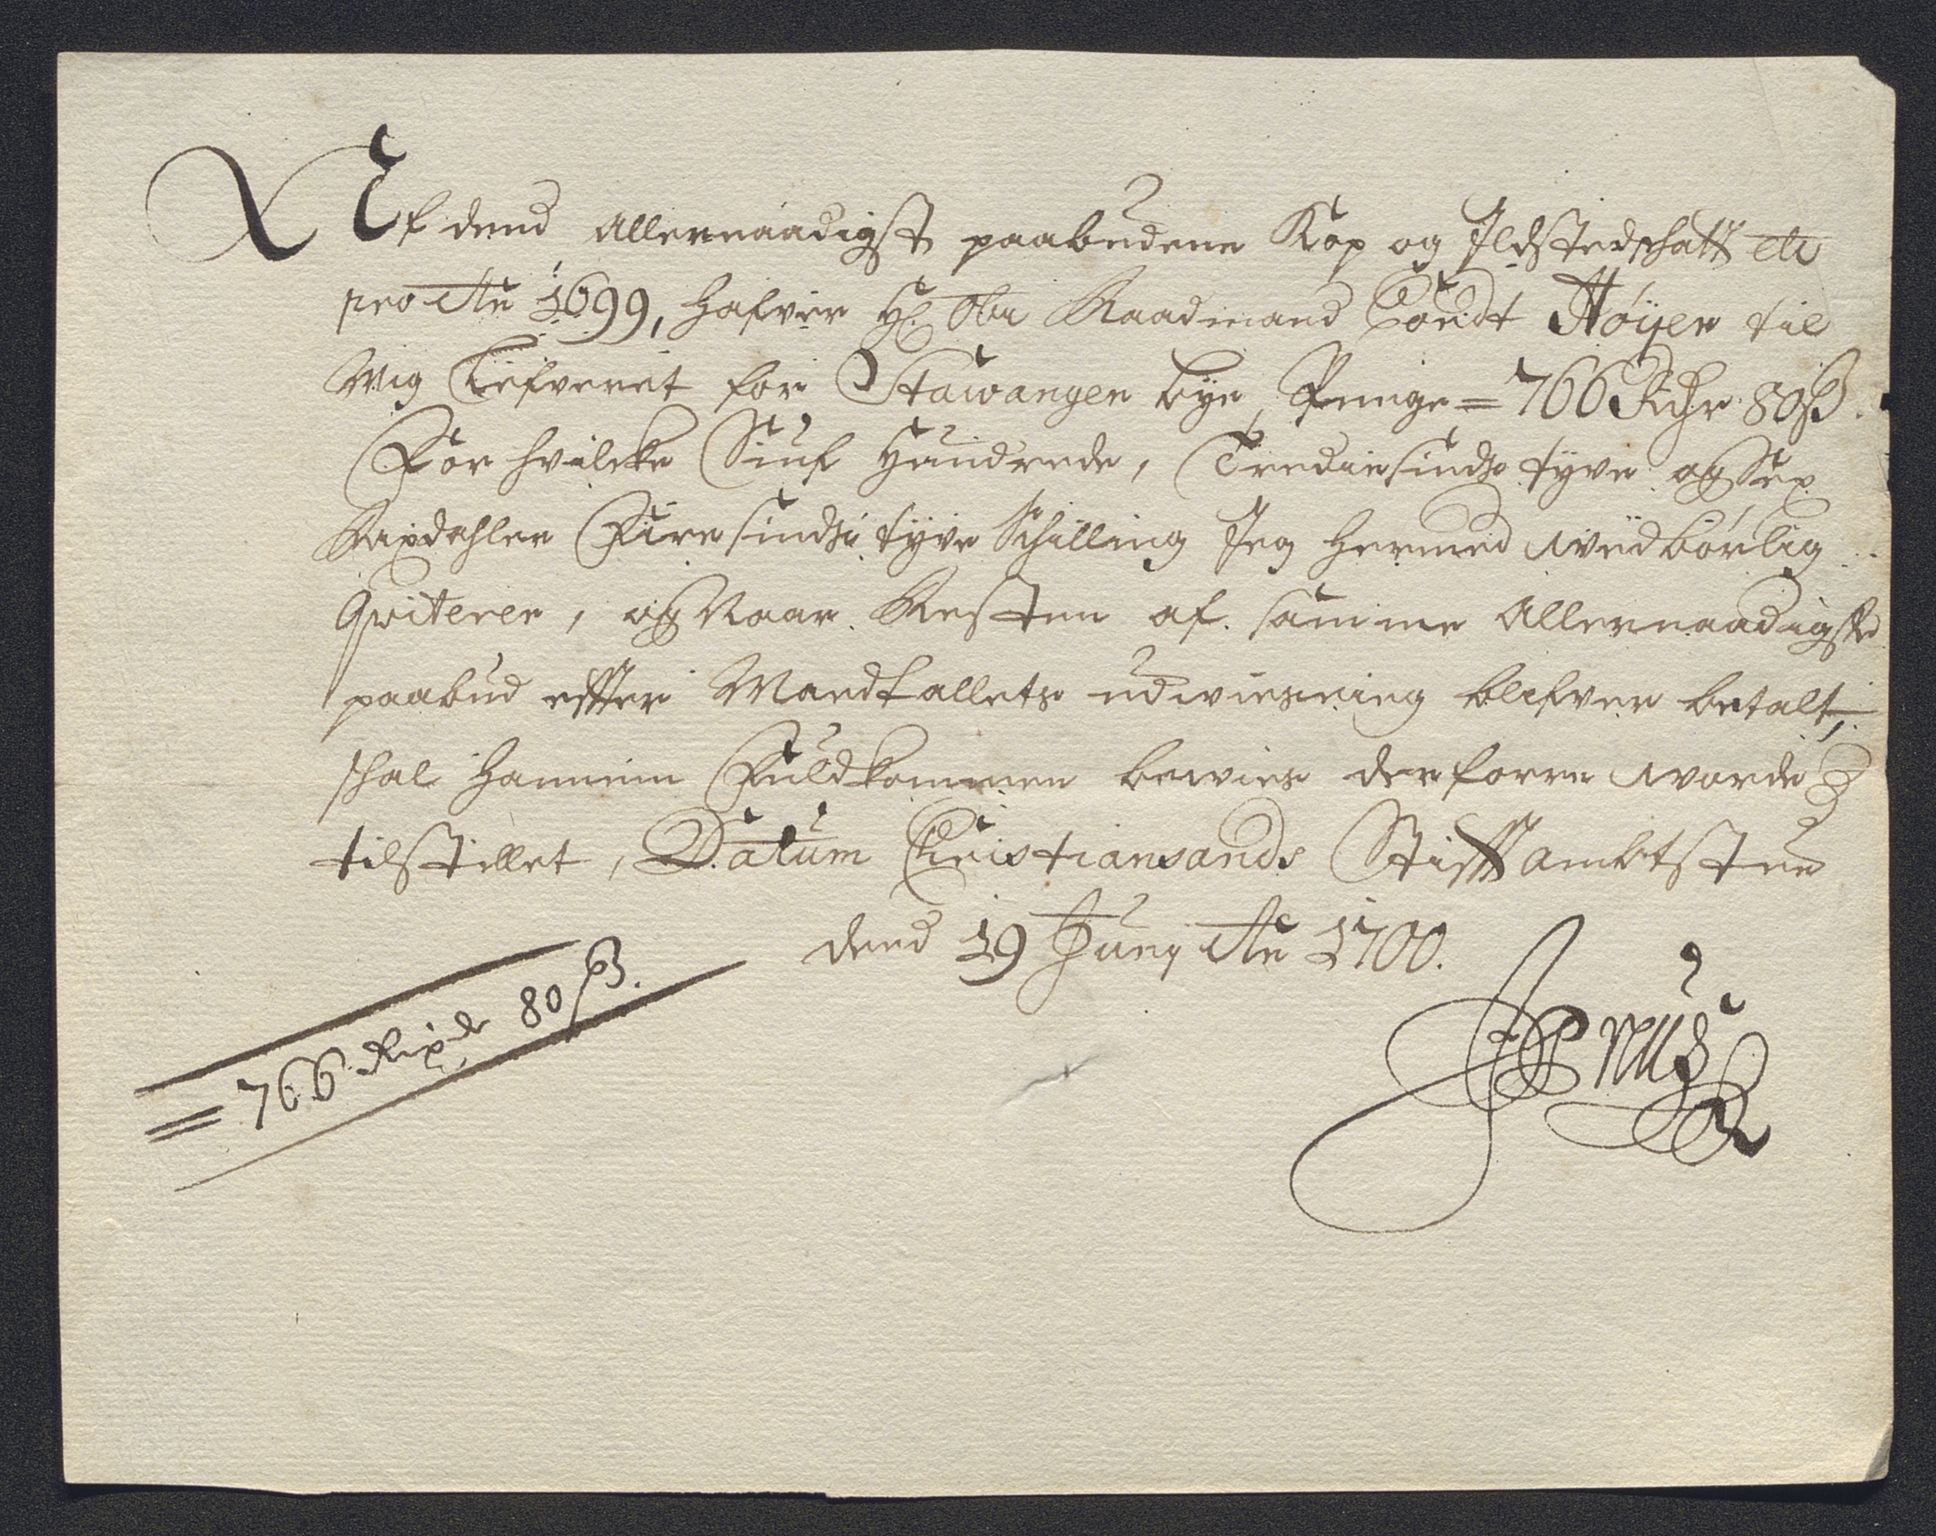 Af dend Allernaadigst paabudene Kop og Ildstedschatt etc
pro Ao 1699, hafver Hr. Obr Raadmand Cordt Höyer til
Mig Lefveret for Stawanger bye, Penge = 766 Rdr 80 ß.
For hvilcke Siuf Hundrede, Trediesinds tyve og Sex
Rixdahler Firesindse tyve Schilling Jeg hermed wedbörlig
Qviterer, og Naar Resten af samme Allernaadigste
paabud effter Mandtallets udwiesning blifver betalt,
schal hannem Fuldkommen bewies derforre worde
tilstillet, Datum Christiansands Stifftambtstue
dend 19 Juny Ao 1700.
= 766 Rixdr 80 ß.